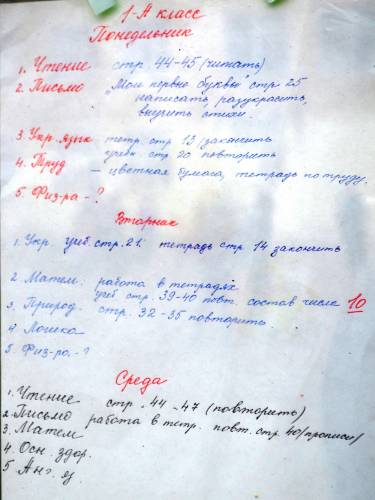 1-А класс
Понедельник
1. Чтение стр 44-45 (читать)
2. Письмо „Мои первые буквы" стр 25
написать, разукрасить,
выучить стихи.
3. Укр. язык тетр. стр 13 /закончить
учебн стр 20 повторить
4. Труд – цветная бумага, тетрадь по труду.
5. Физ-ра - ?
Вторник
1. Укр. учеб. стр. 21. тетрадь стр 14 закончить
2 Матем. работа в тетрадях
учеб стр. 39-40 повт. состав числа 10
3. Природ. стр. 32-35 повторить.
4 Логика
5. Физ-ра. - ?
Среда
1. Чтение стр. 44-47 (повторить)
2. Письмо работа в тетр. повт. стр. 40 /прописи/
3. Матем
4. Осн. здор.
5 Анг. яз.